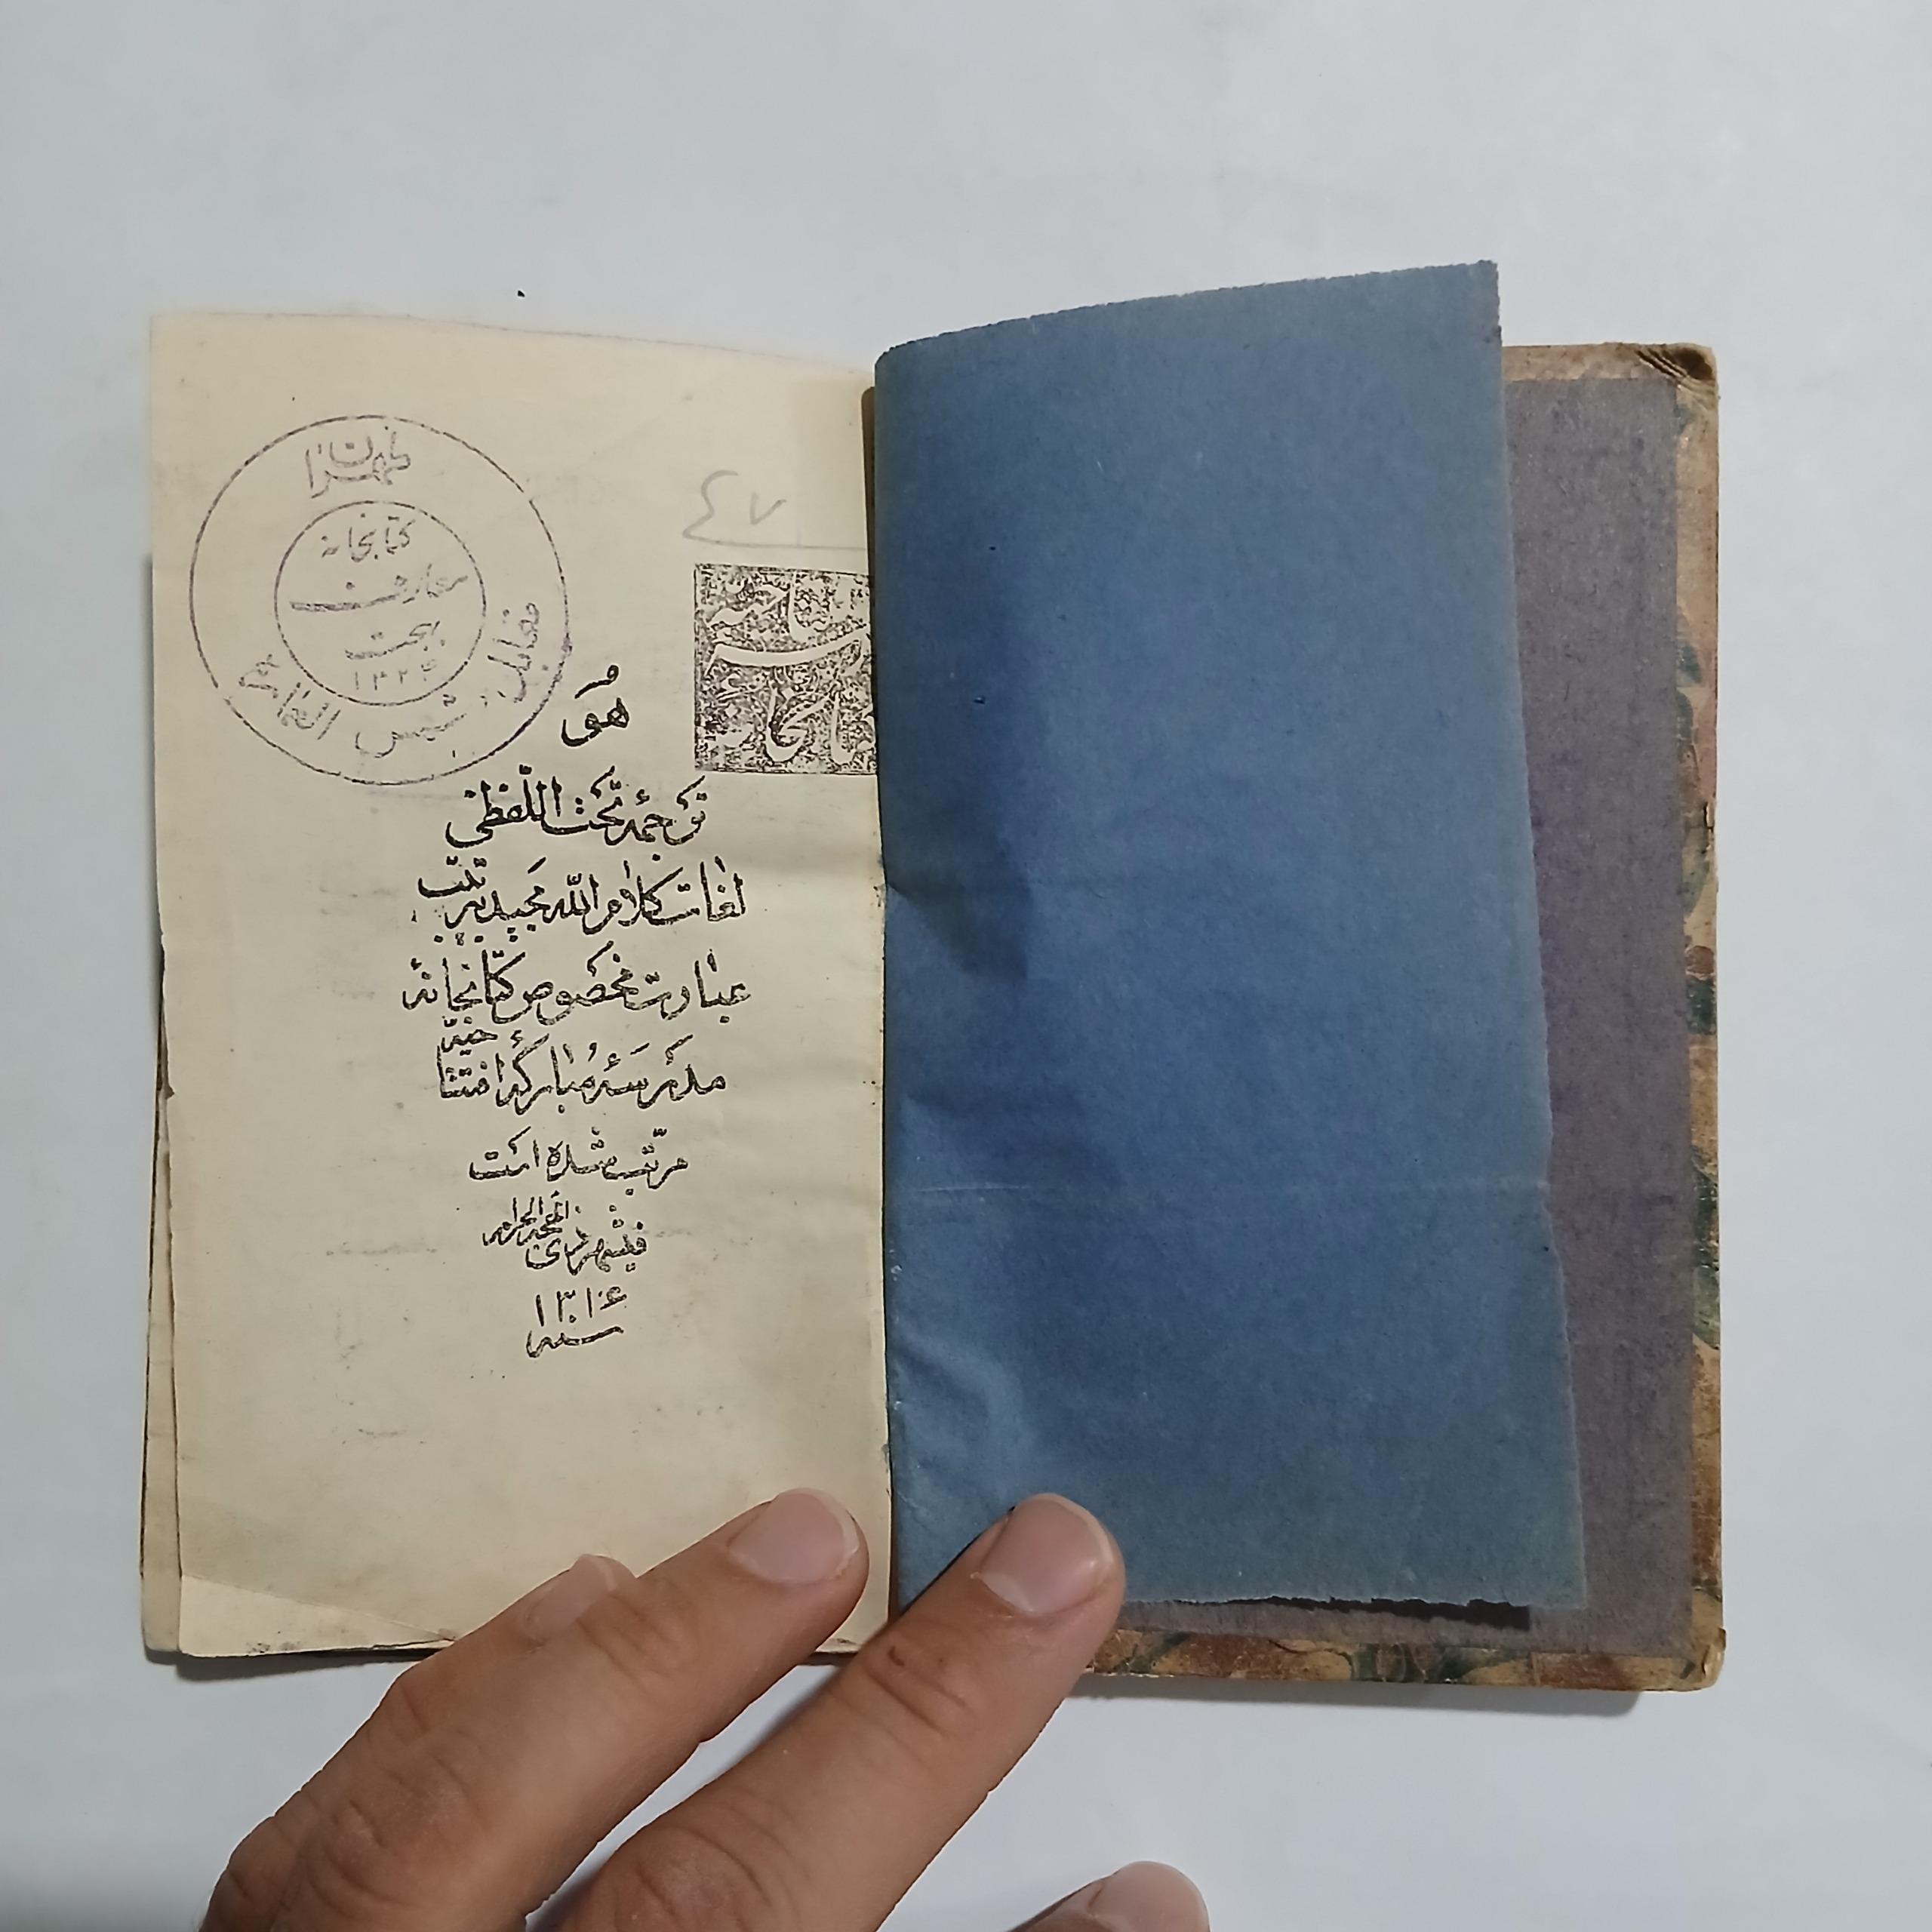 طهران
کتابخانه
معارف
بهجت
۱۳۲۴
مقابل شمس العماره
٤٧
هُوَ
ترجمهٔ تحت اللّفظی
لغات کلام الله مجید بترتیب
عبارت مخصوص کتابخانهٔ
مدرسهٔ مبارکهٔ افتتاحیّه
مرتّب شده است
فی شهر ذی الحجه الحرام
سنه ۱۳۱۶